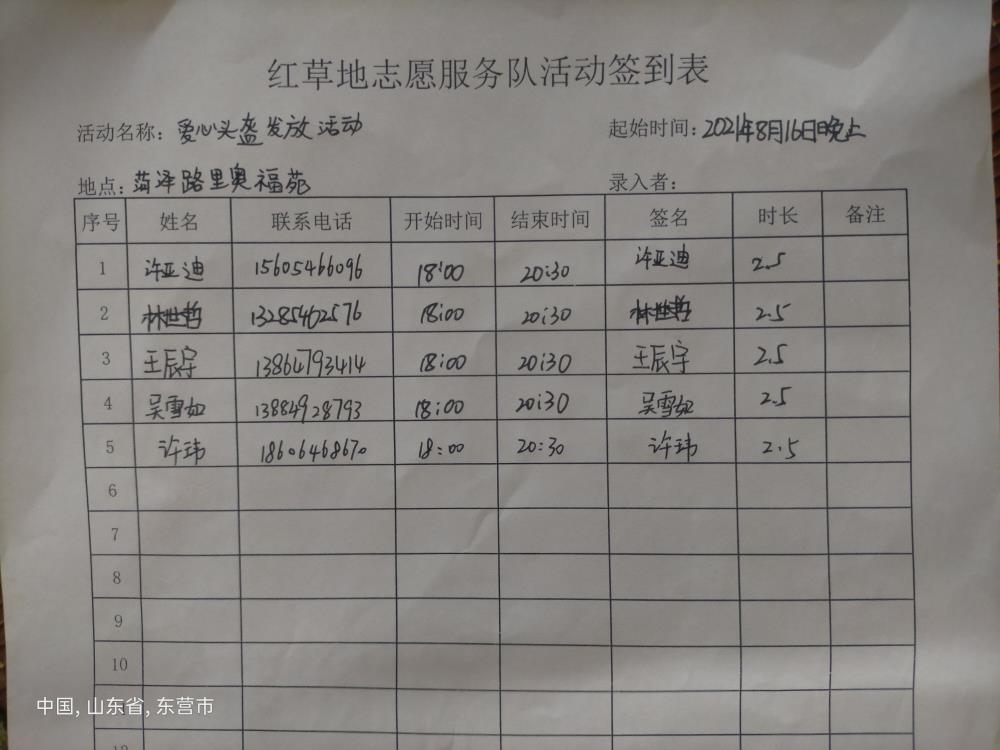 红草地志愿服务队活动签到表
活动名称：爱心头盔发放活动 起始时间：2021年8月16日晚上
地点：菏泽路里奥福苑 录入者：
序号 姓名 联系电话 开始时间 结束时间 签名 时长 备注
1 许亚迪 15605466096 18:00 20:30 许亚迪 2.5
2 林世哲 13285462576 18:00 20:30 林世哲 2.5
3 王辰宇 13864793414 18:00 20:30 王辰宇 2.5
4 吴雪如 13884928793 18:00 20:30 吴雪如 2.5
5 许玮 18606468670 18:00 20:30 许玮 2.5
6
7
8
9
10
中国, 山东省, 东营市